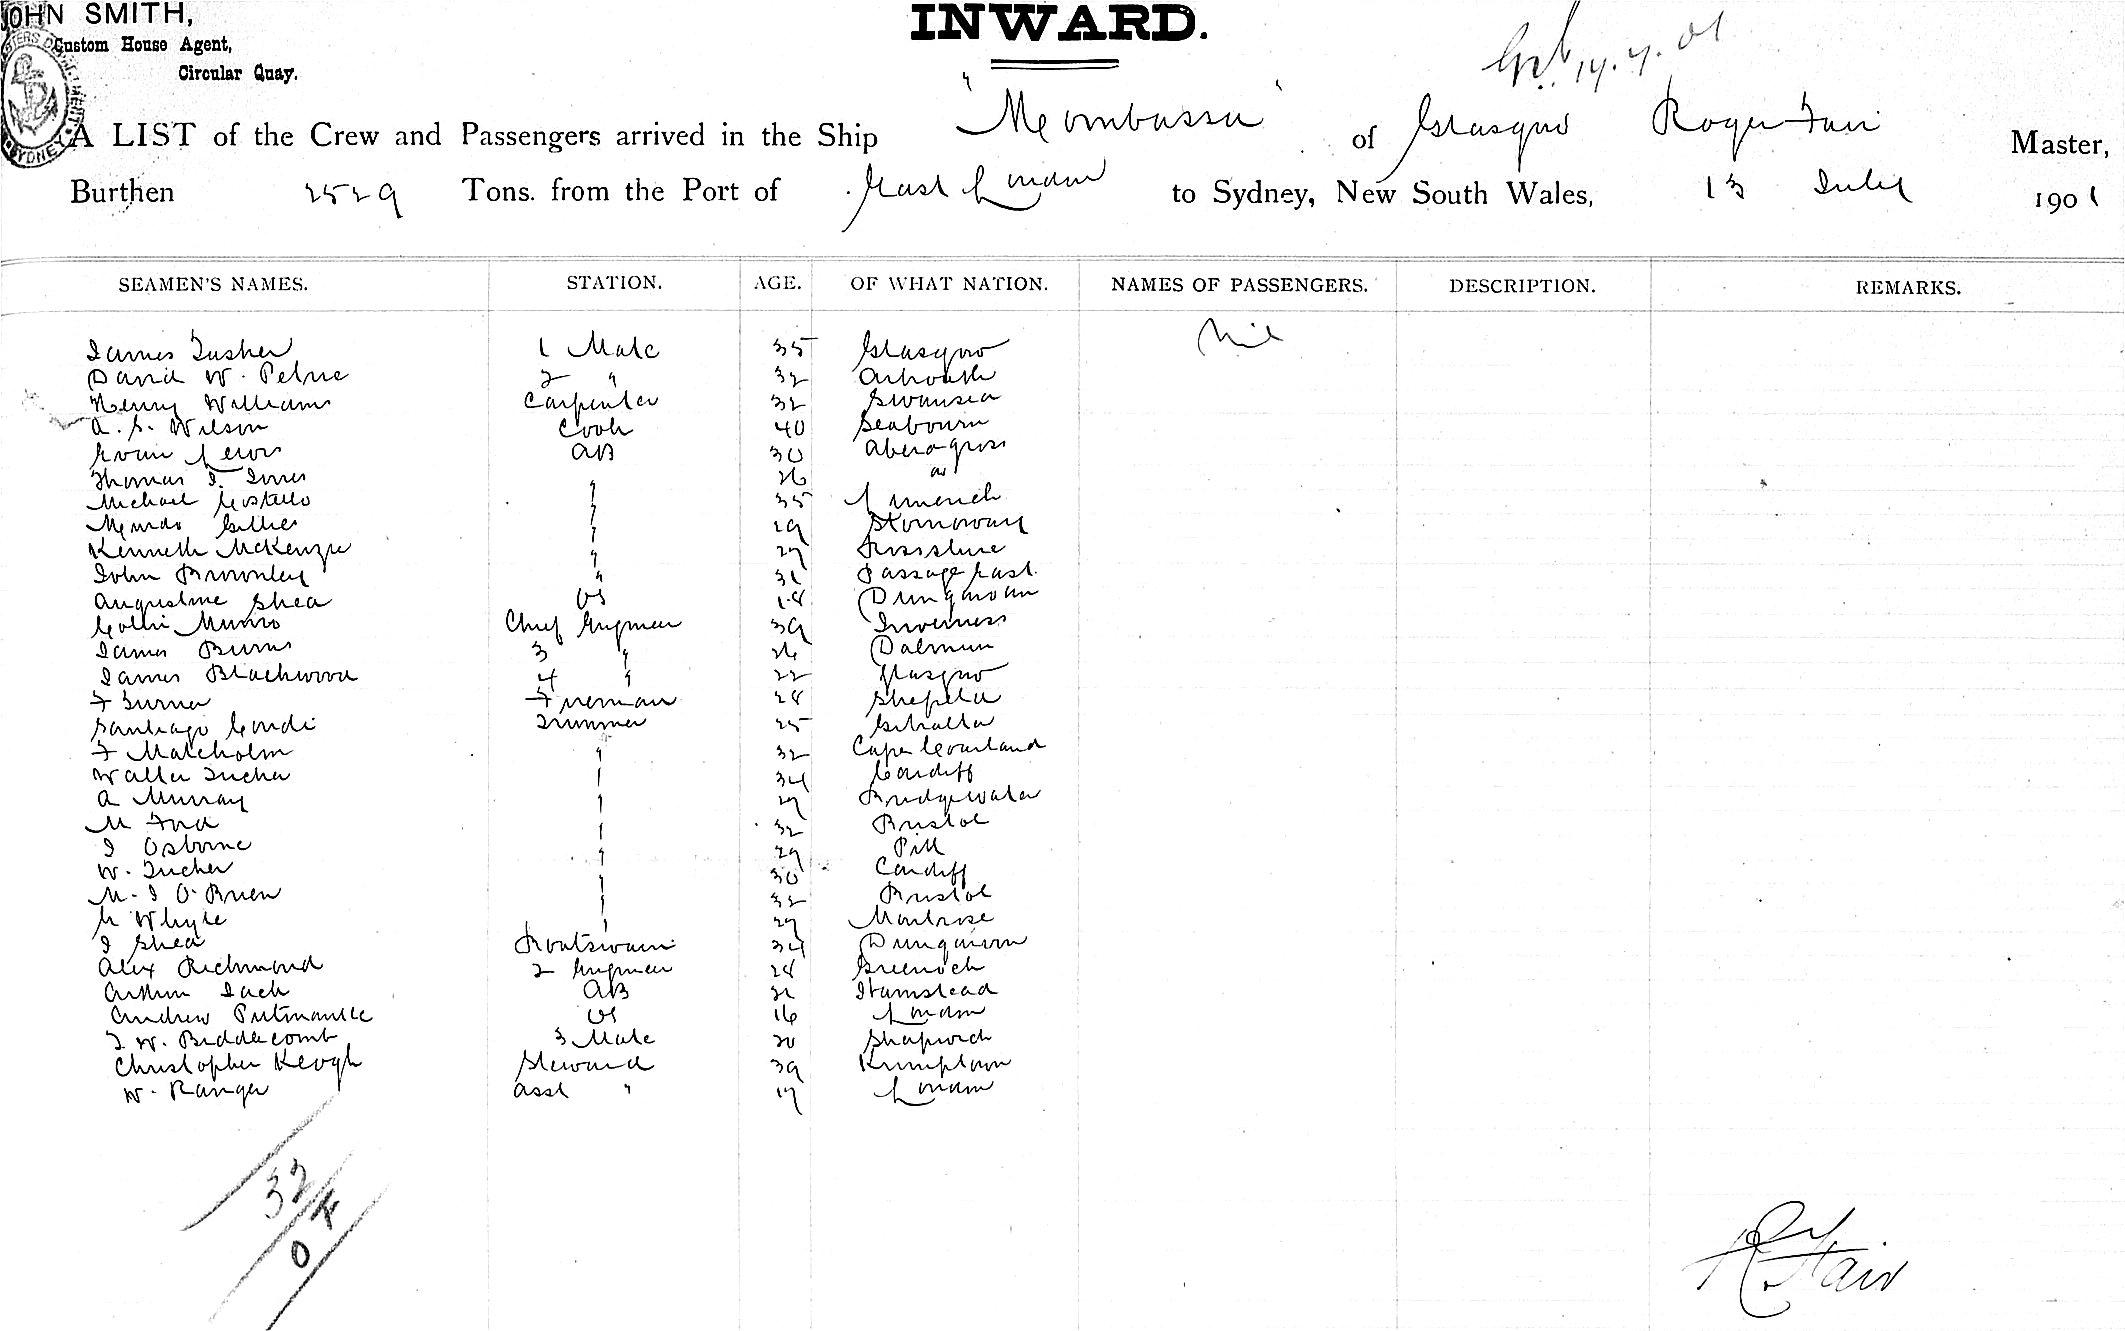 JOHN SMITH,
Custom House Agent,
Circular Quay.
INWARD.
A LIST of the Crew and Passengers arrived in the Ship "Mombassa" of Glasgow Roger Fair Master,
Burthen 2529 Tons. from the Port of East London to Sydney, New South Wales, 13 July 1901
SEAMEN'S NAMES. STATION. AGE. OF WHAT NATION. NAMES OF PASSENGERS. DESCRIPTION. REMARKS.
James 1 Mate 35 Glasgow Nil
David W. Petrie 2 " 32 Arbroath
Henry Williams Carpenter 32 Swansea
A. S. Wilson Cook 40 Seabourn
Evan Lewis AB 30
Thomas J. Innes " 26
Michael Costello " 35 Limerick
Murdo Gillies " 29 Stornoway
Kenneth McKenzie " 27 Rossshire
John Brownley " 31 Passage East
Augustine Shea OS 18 Dungarvan
Collin Munro Chief Engineer 39 Inverness
James Burns 3 " 26 Dalmuir
James Blackwood 4 " 22 Glasgow
F Turner Fireman 28
Santiago Condi Trimmer 25
F Malcholm " 32 Cape
Walter Tucker " 34 Cardiff
A Murray " 27 Bridgewater
M Ford " 32 Bristol
J Osborne " 29 Pill
W. Tucker " 30 Cardiff
M. J O'Brien " 32 Bristol
Whyte " 27 Montrose
J Shea Boatswain 34 Dungarvan
Alex Richmond 2 Engineer 28 Greenock
Arthur Jack AB 21 Hamstead
Andrew OS 16 London
W. Biddlecomb 3 Mate 20 Shapwick
Christopher Keogh Steward 39
W. Ranger Asst " 17 London
32
0
R. Fair